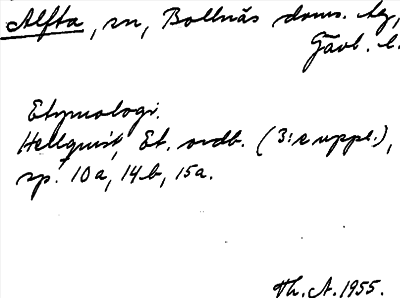 Alfta, sn, Bollnäs doms. hg,
Gävl. l.
Etymologi.
Hellquist, Et. ordb. (3:e uppl.),
sp. 10a, 14b, 15a.
Th. A. 1955.